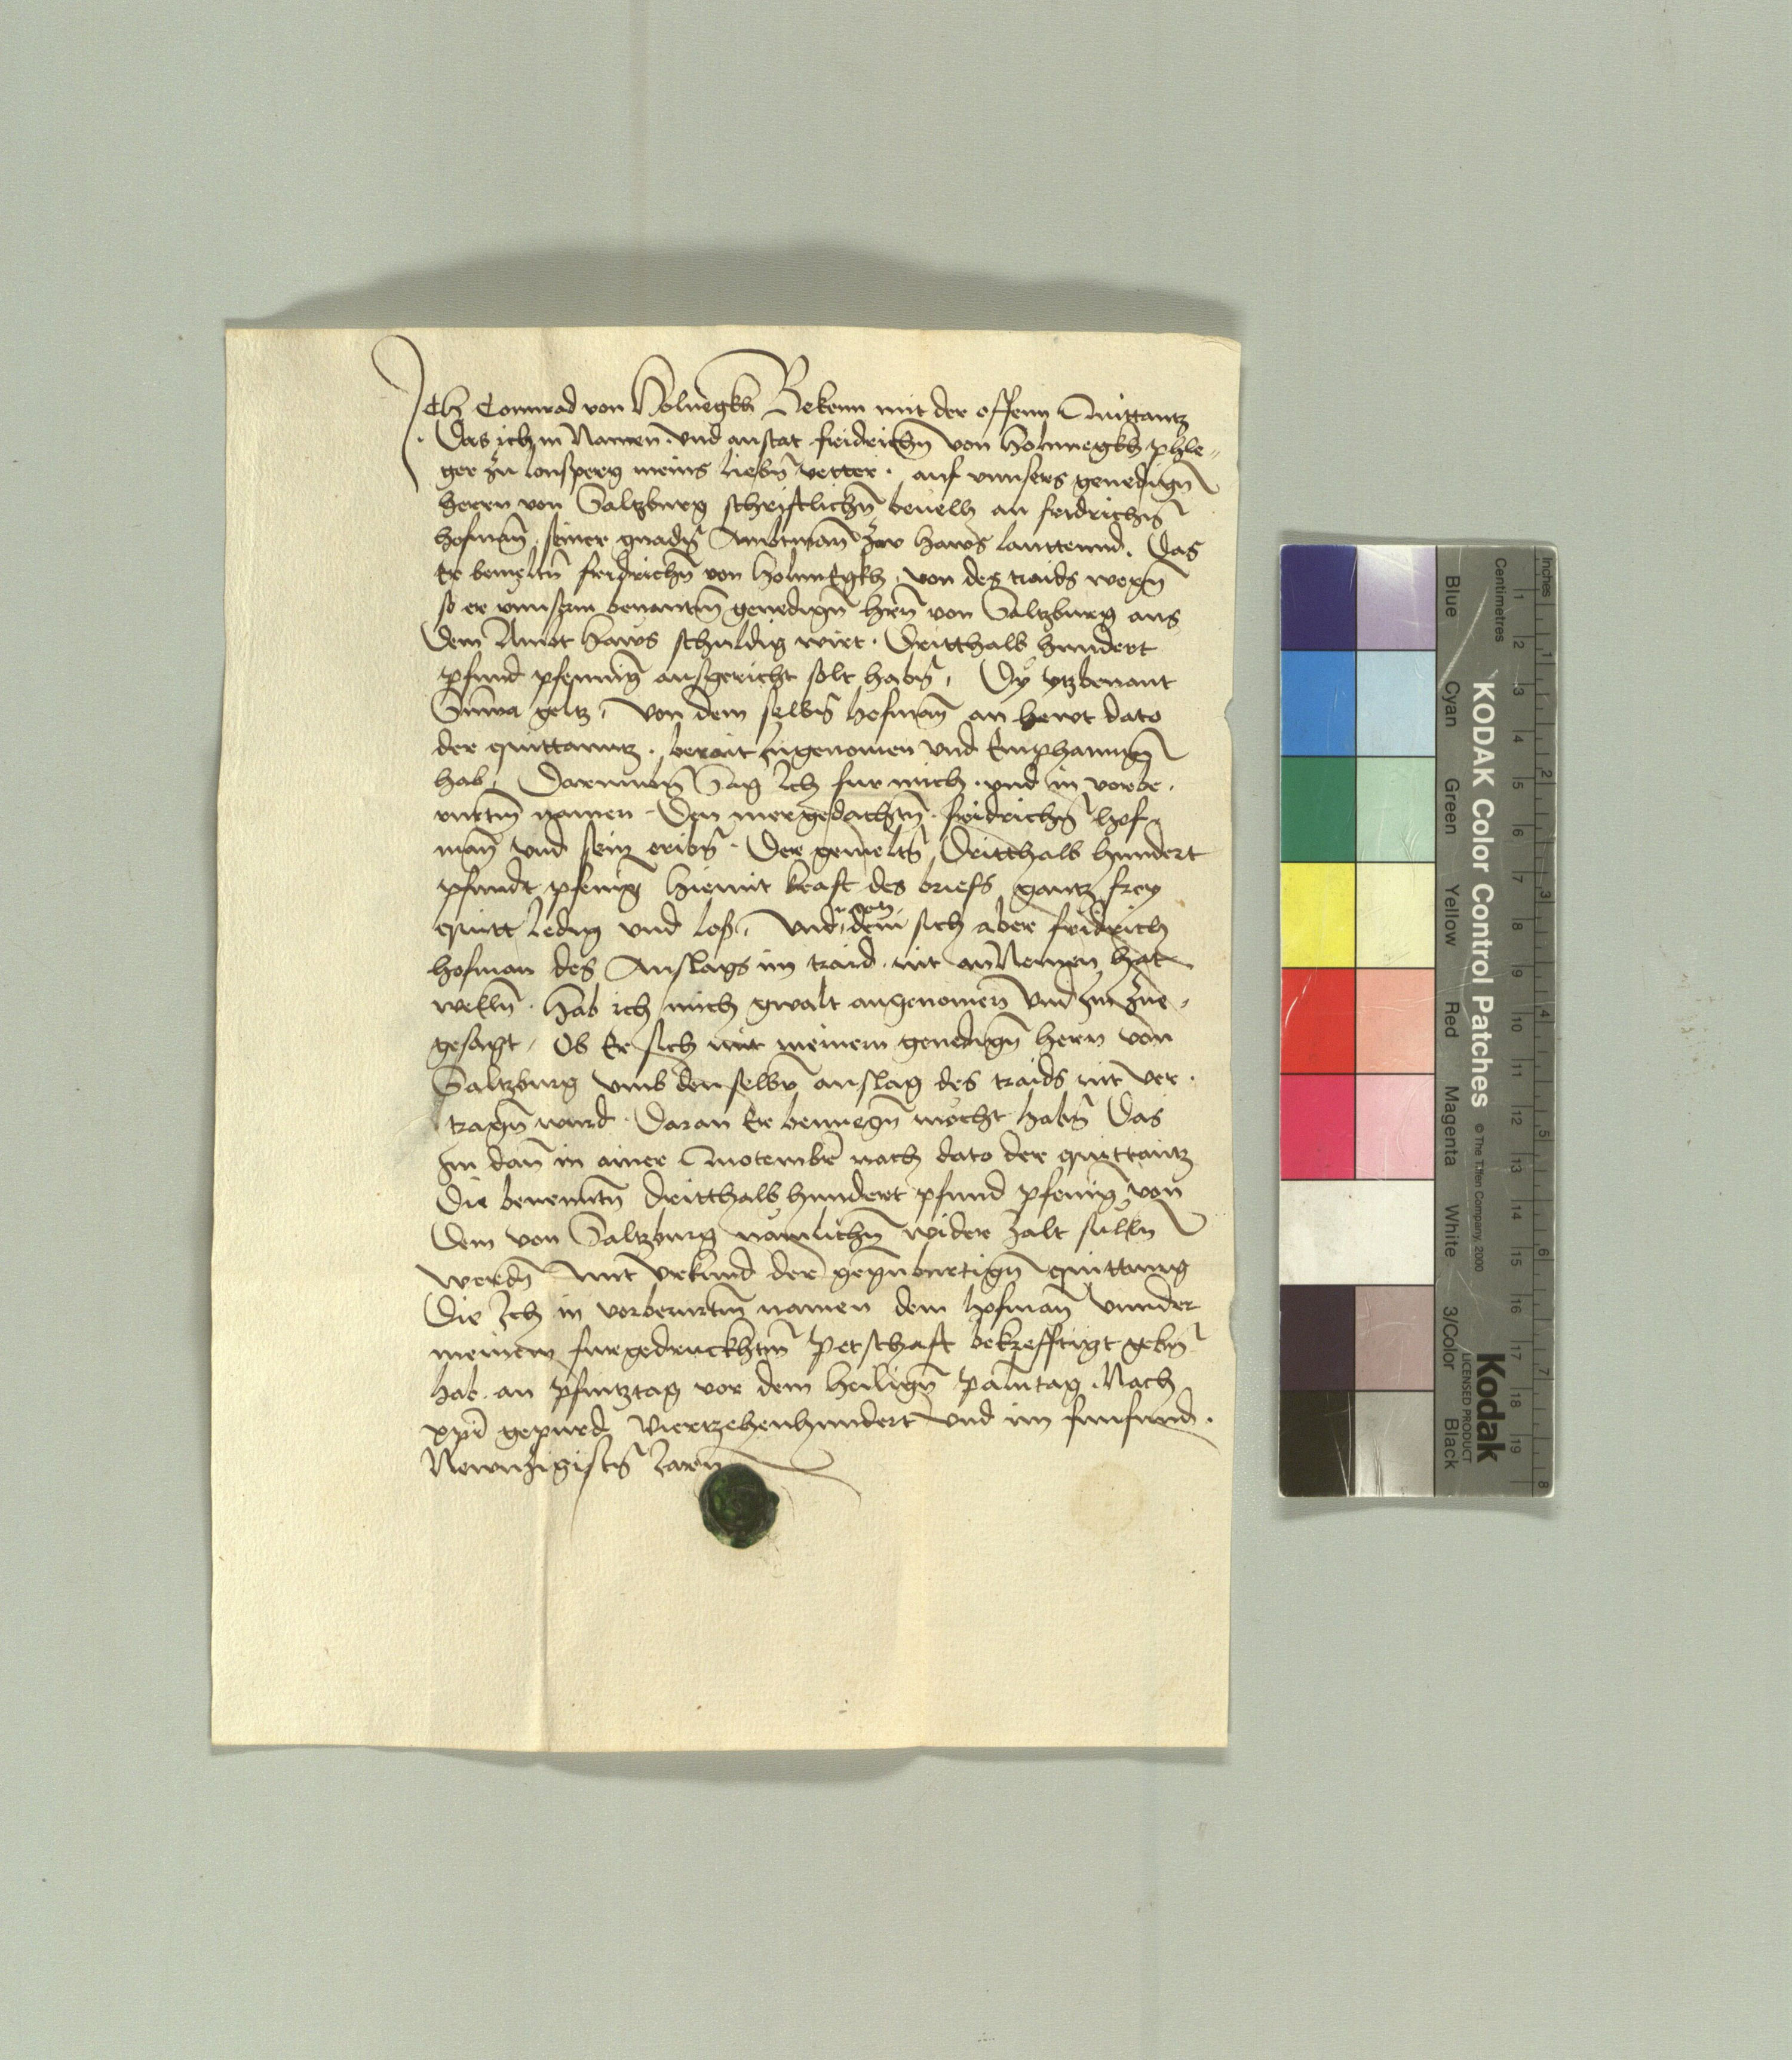 Ich Connrad von Holnegkh Bekenn mit der offenn Quittantz
Das ich in Namen und anstat fridrichn̄ von Holnnegkh phle„
ger zu lonsperg meins liebn̄ vetter · auf unnsers genedign̄
herrn von Saltzburg schriftlichn̄ bevelh an fridrichn̄
hofman̄ seiner gnadn̄ Ambtman̄ zw haws lauttennd. Das
Er bemeltn̄ fridrichn̄ von Holnnegkh, von des traids wegn̄
so er unnserm benantn̄ genedign̄ hern̄ von Saltzburg aus
Dem Ambt Haws schuldig wirt · Dritthalb hundert
pfund pfenniḡ ausgericht solt habn̄, Dy ytzbenant
Suma geltz, von dem selbn̄ hofman̄ an hewt dato
der quittanntz · berait Ingenomen und Emphanngn̄
hab, Darumben̄ Sag Ich fur mich · und in vorbe·
rurtn̄ namen · Den mergedachtn̄ · fridrichn̄ hof·
man̄ und sein eribn̄ · Der gemeltn̄ Dritthalb hundert
pfundt pfeniḡ hiemit kraft des briefs gantz frey
quitt ledig und los, Und dem sich aber fridrich
hofman des Anslags im traid · nit anNemen hat
welln̄ · hab ich mich gwalt angenomen und Im zue·
gesagt, Ob Er sich mit meinem genedign̄ hern von
Saltzburg umb denselbn̄ anslag des traids nit ver·
tragn̄ wurd · Daran Er benuegn̄ mocht habn̄ Das
Im dan̄ in ainer Quotember̄ nach dato der quittantz
Die benentn̄ dritthalb hundert pfund pfeniḡ von
Dem von Saltzburg namlichn̄ wider zalt sulln̄
werdn̄ Mit Urkund der gegnburtign̄ quittung
Die Ich in vorberurtn̄ namen dem hofman̄ Unnder
meinem furgedruckhtn̄ petschaft bekrefftigt gebn̄
hab · an pfintztag vor dem heilign̄ palmtag · Nach
xpi̅ gepurd Viertzehenhundert und im funfund·
Newnzigistn̄ Jarn
KODAK Color Control Patches © The Tiffen Company, 2000
Kodak
LICENSED PRODUCT
Inches 1 2 3 4 5 6 7 8
Centimetres 1 2 3 4 5 6 7 8 9 10 11 12 13 14 15 16 17 18 19
Blue Cyan Green Yellow Red Magenta White 3/Color Black